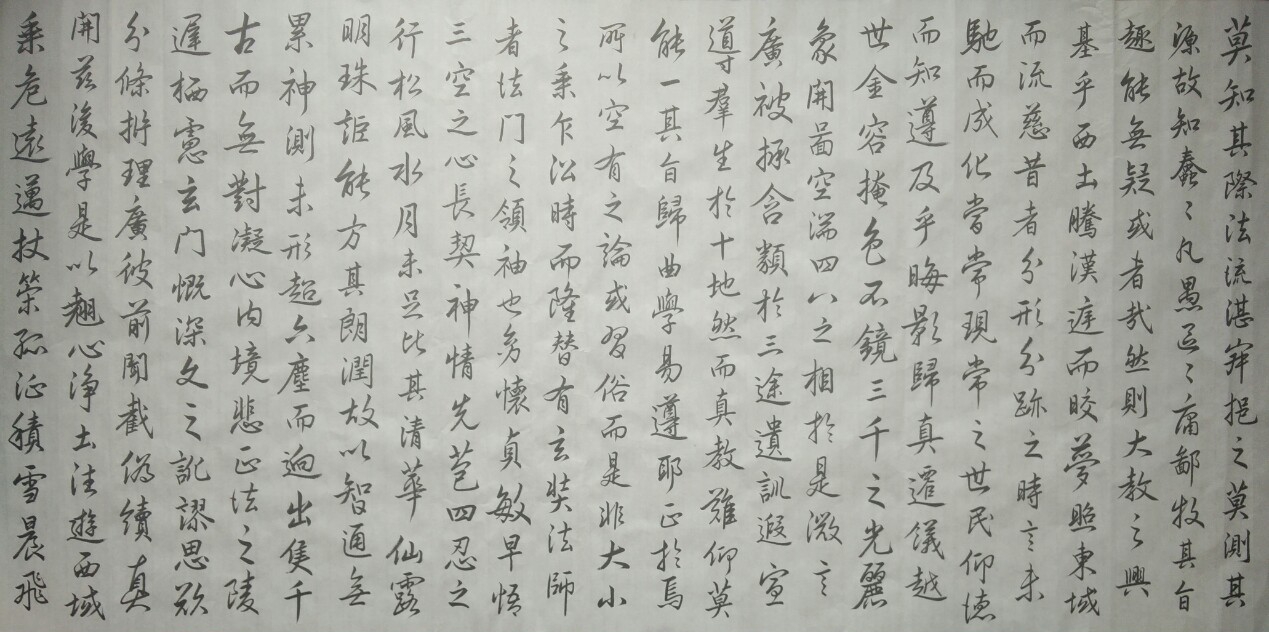 莫知其際法流湛寂挹之莫測其
源故知蠢〻凡愚區〻庸鄙牧其旨
趣能無疑或者哉然則大教之興
基乎西土騰漢庭而皎夢照東域
而流慈昔者分形分跡之時言未
馳而成化當常現常之世民仰德
而知遵及乎晦影歸真遷儀越
世金容掩色不鏡三千之光麗
象開啚空端四八之相於是微言
廣被拯含類於三途遺訓遐宣
導群生於十地然而真教難仰莫
能一其旨歸曲學易遵耶正於焉
所以空有之論或習俗而是非大小
之乘乍㳂時而隆替有玄奘法師
者法門之領袖也幼懷貞敏早悟
三空之心長契神情先苞四忍之
行松風水月未足比其清華仙露
明珠詎能方其朗潤故以智通無
累神測未形超六塵而迥出隻千
古而無對凝心内境悲正法之陵
遲栖慮玄門慨深文之訛謬思欲
分條㭊理廣彼前聞截偽續真
開茲後學是以翹心淨土法遊西域
乘危遠邁杖策孤征積雪晨飛